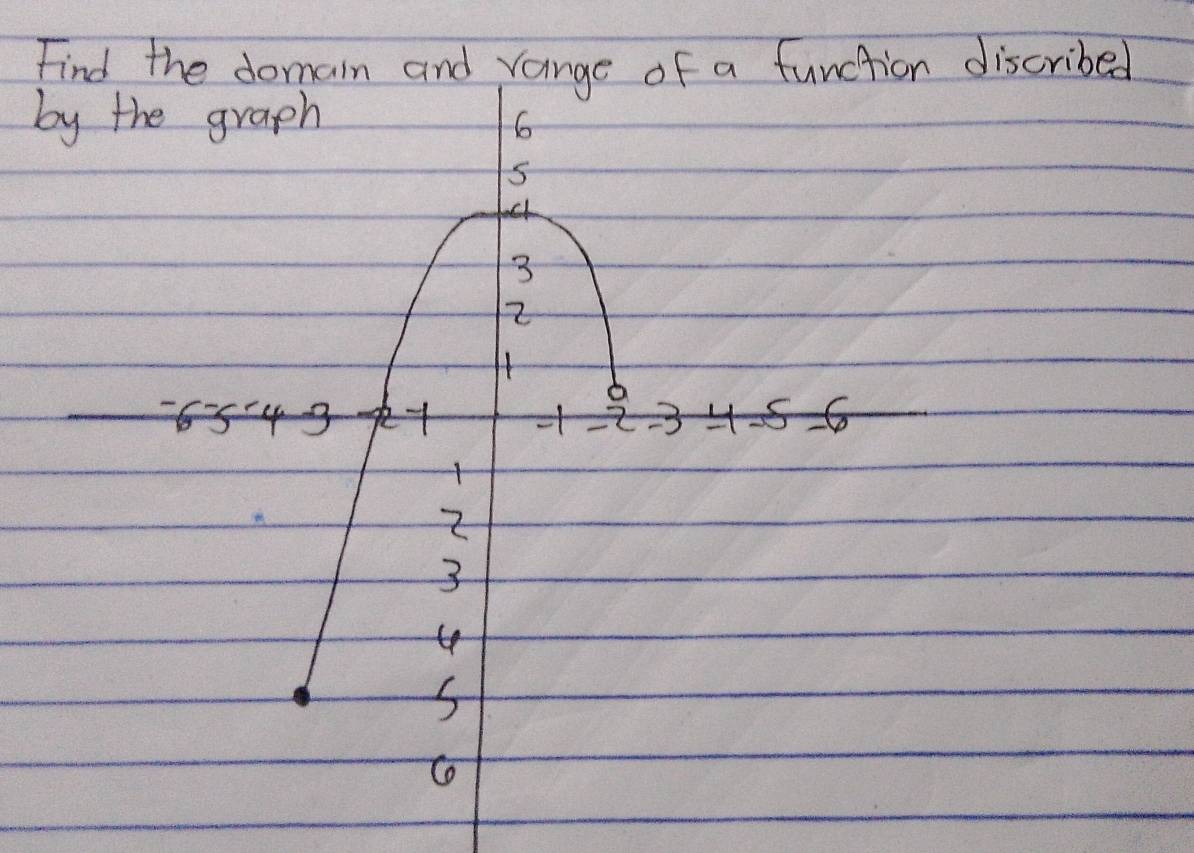 Find the domain and range of a function discribed
by the graph
6
5
4
3
2
1
-6 -5 -4 -3 -2 -1 -1 -2 -3 -4 -5 -6
1
2
3
4
5
6